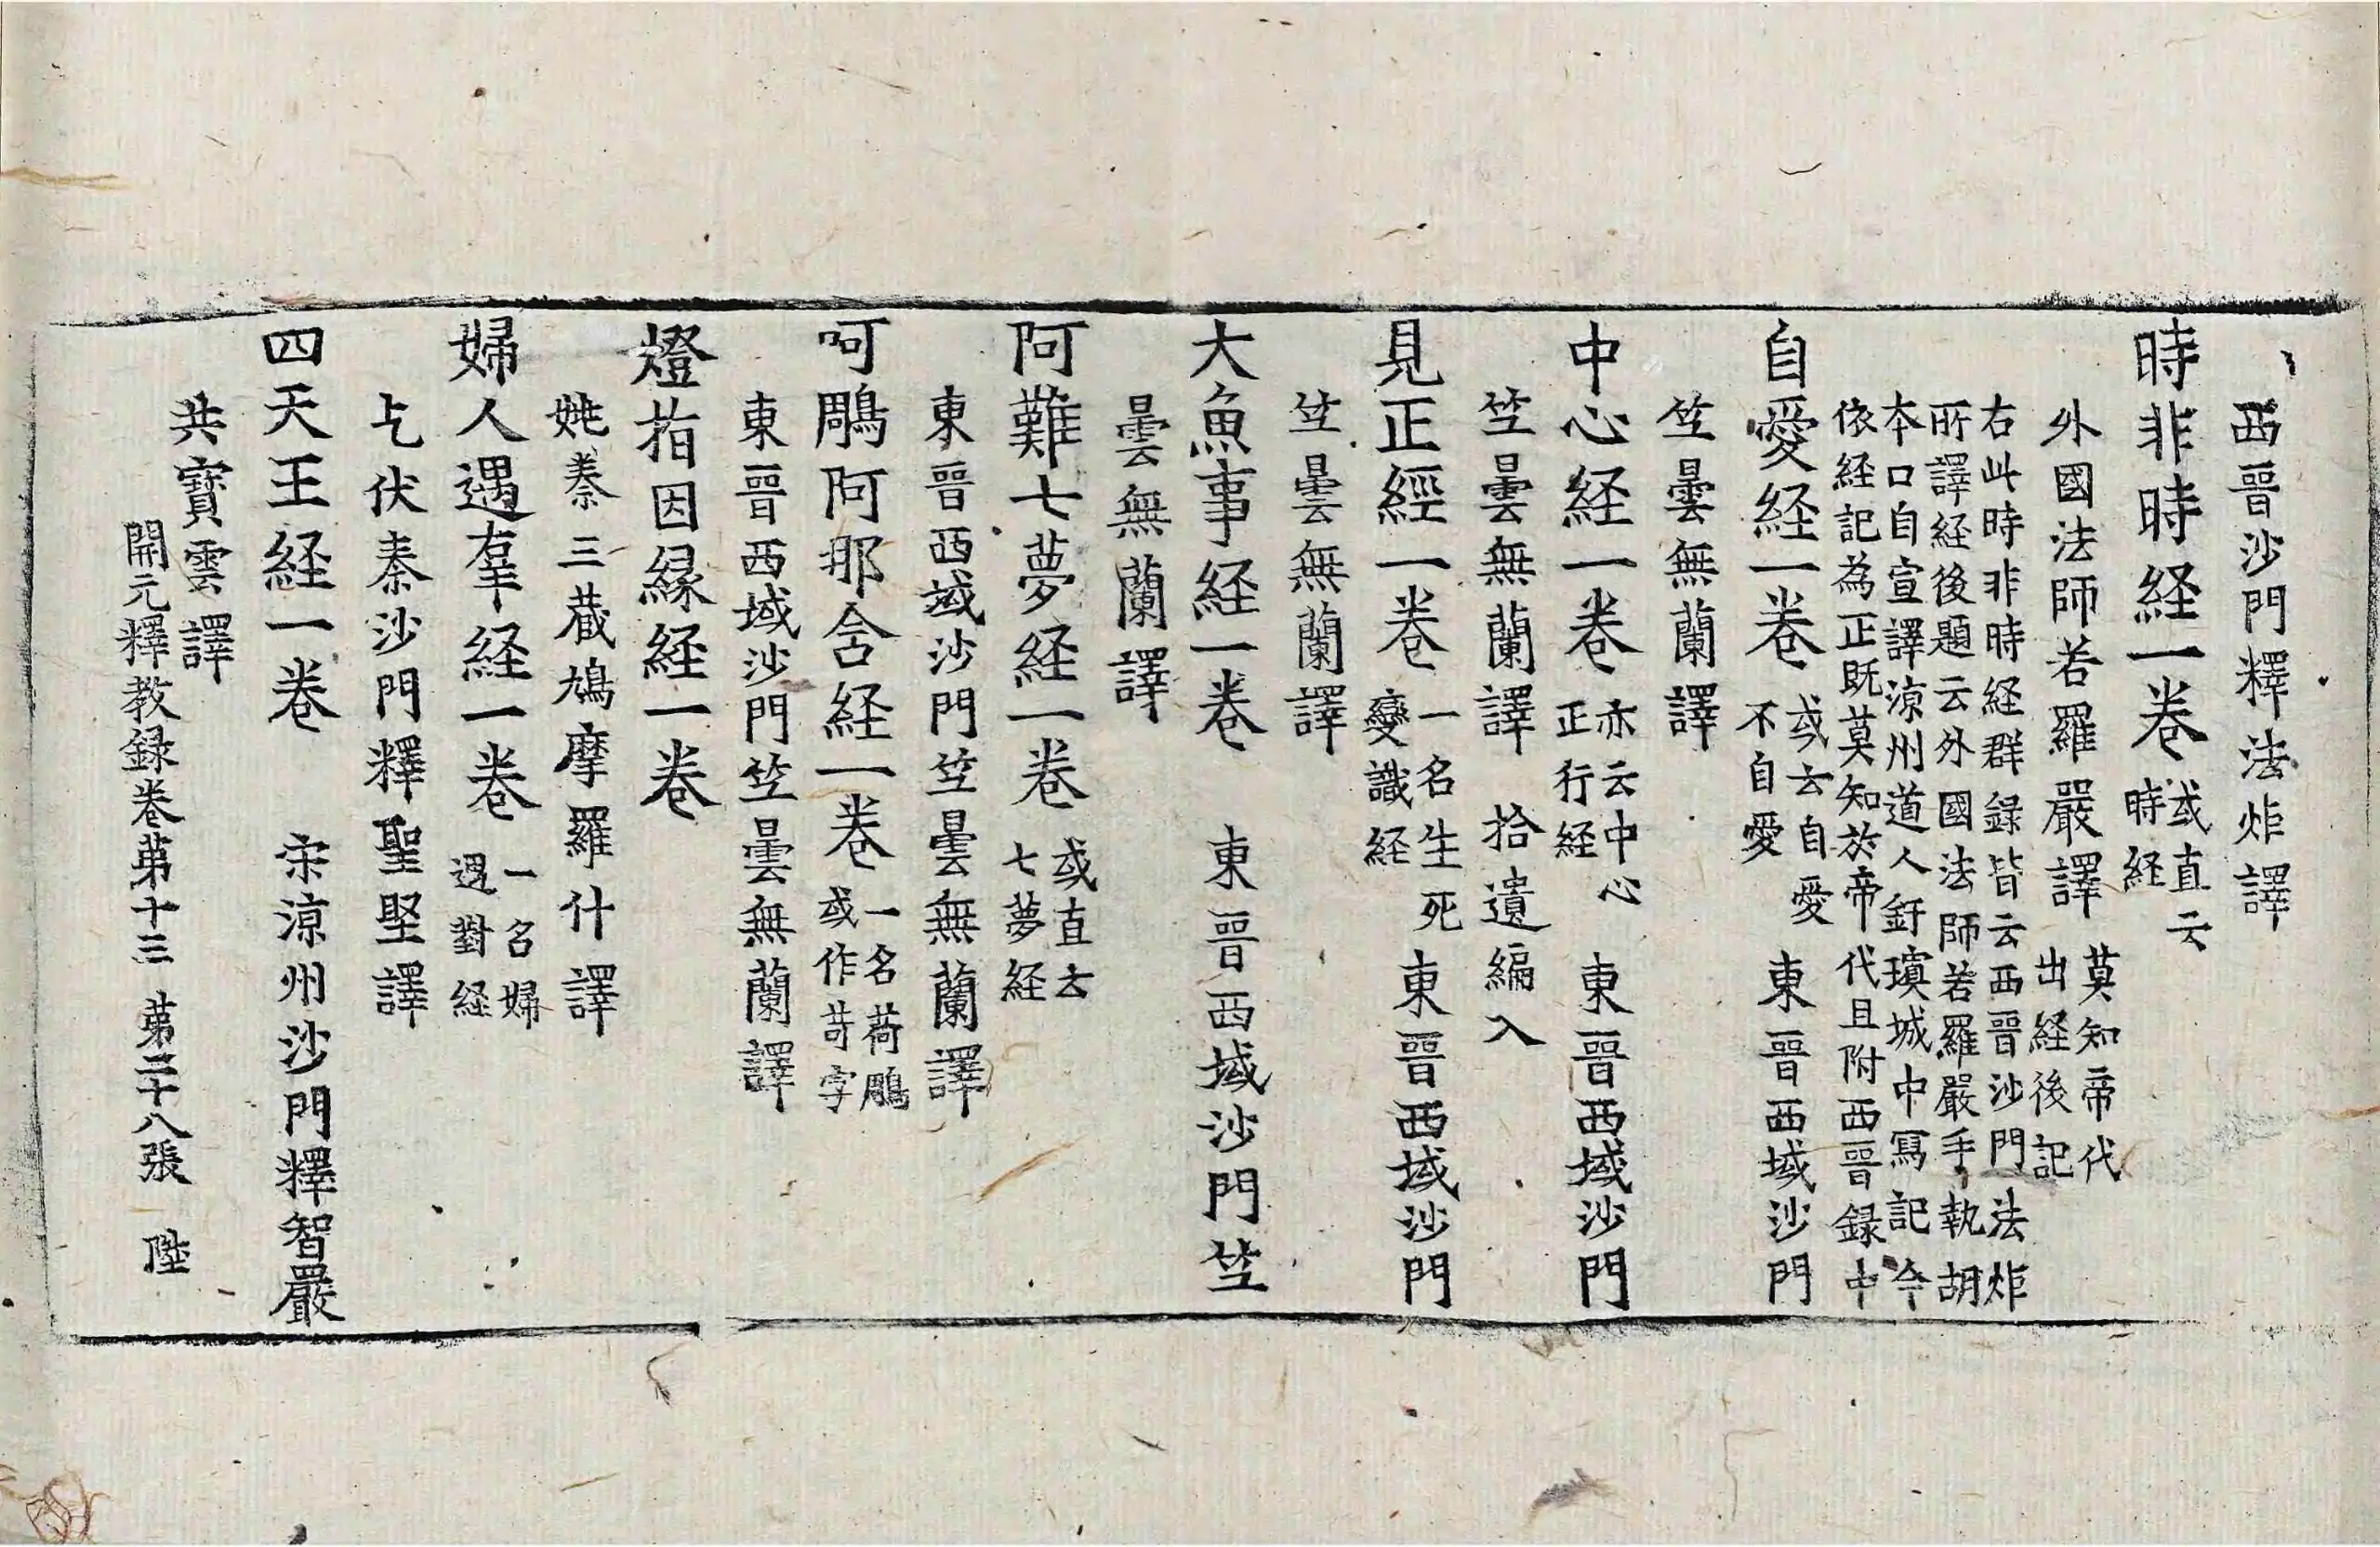 西晉沙門釋法炬譯
時非時経一卷 或直云時経
外國法師若羅嚴譯 莫知帝代出経後記
右此時非時経群録皆云西晉沙門法炬
所譯経後題云外國法師若羅嚴手執胡
本口自宣譯涼州道人釪瑱城中寫記今
依経記為正既莫知於帝代且附西晉録中
自愛経一卷 或云自愛不自愛 東晉西域沙門
竺曇無蘭譯
中心経一卷 亦云中心正行経 東晉西域沙門
竺曇無蘭譯 拾遺編入
見正經一卷 一名生死變識経 東晉西域沙門
竺曇無蘭譯
大魚事経一卷 東晉西域沙門竺
曇無蘭譯
阿難七夢経一卷 或直云七夢経
東晉西域沙門竺曇無蘭譯
呵鵰阿那含経一卷 一名荷鵰或作苛字
東晉西域沙門竺曇無蘭譯
燈指因縁経一卷
姚秦三藏鳩摩羅什譯
婦人遇辜経一卷 一名婦遇對経
乞伏秦沙門釋聖堅譯
四天王経一卷 宋涼州沙門釋智嚴
共寶雲譯
開元釋教録卷第十三 第三十八張 陞